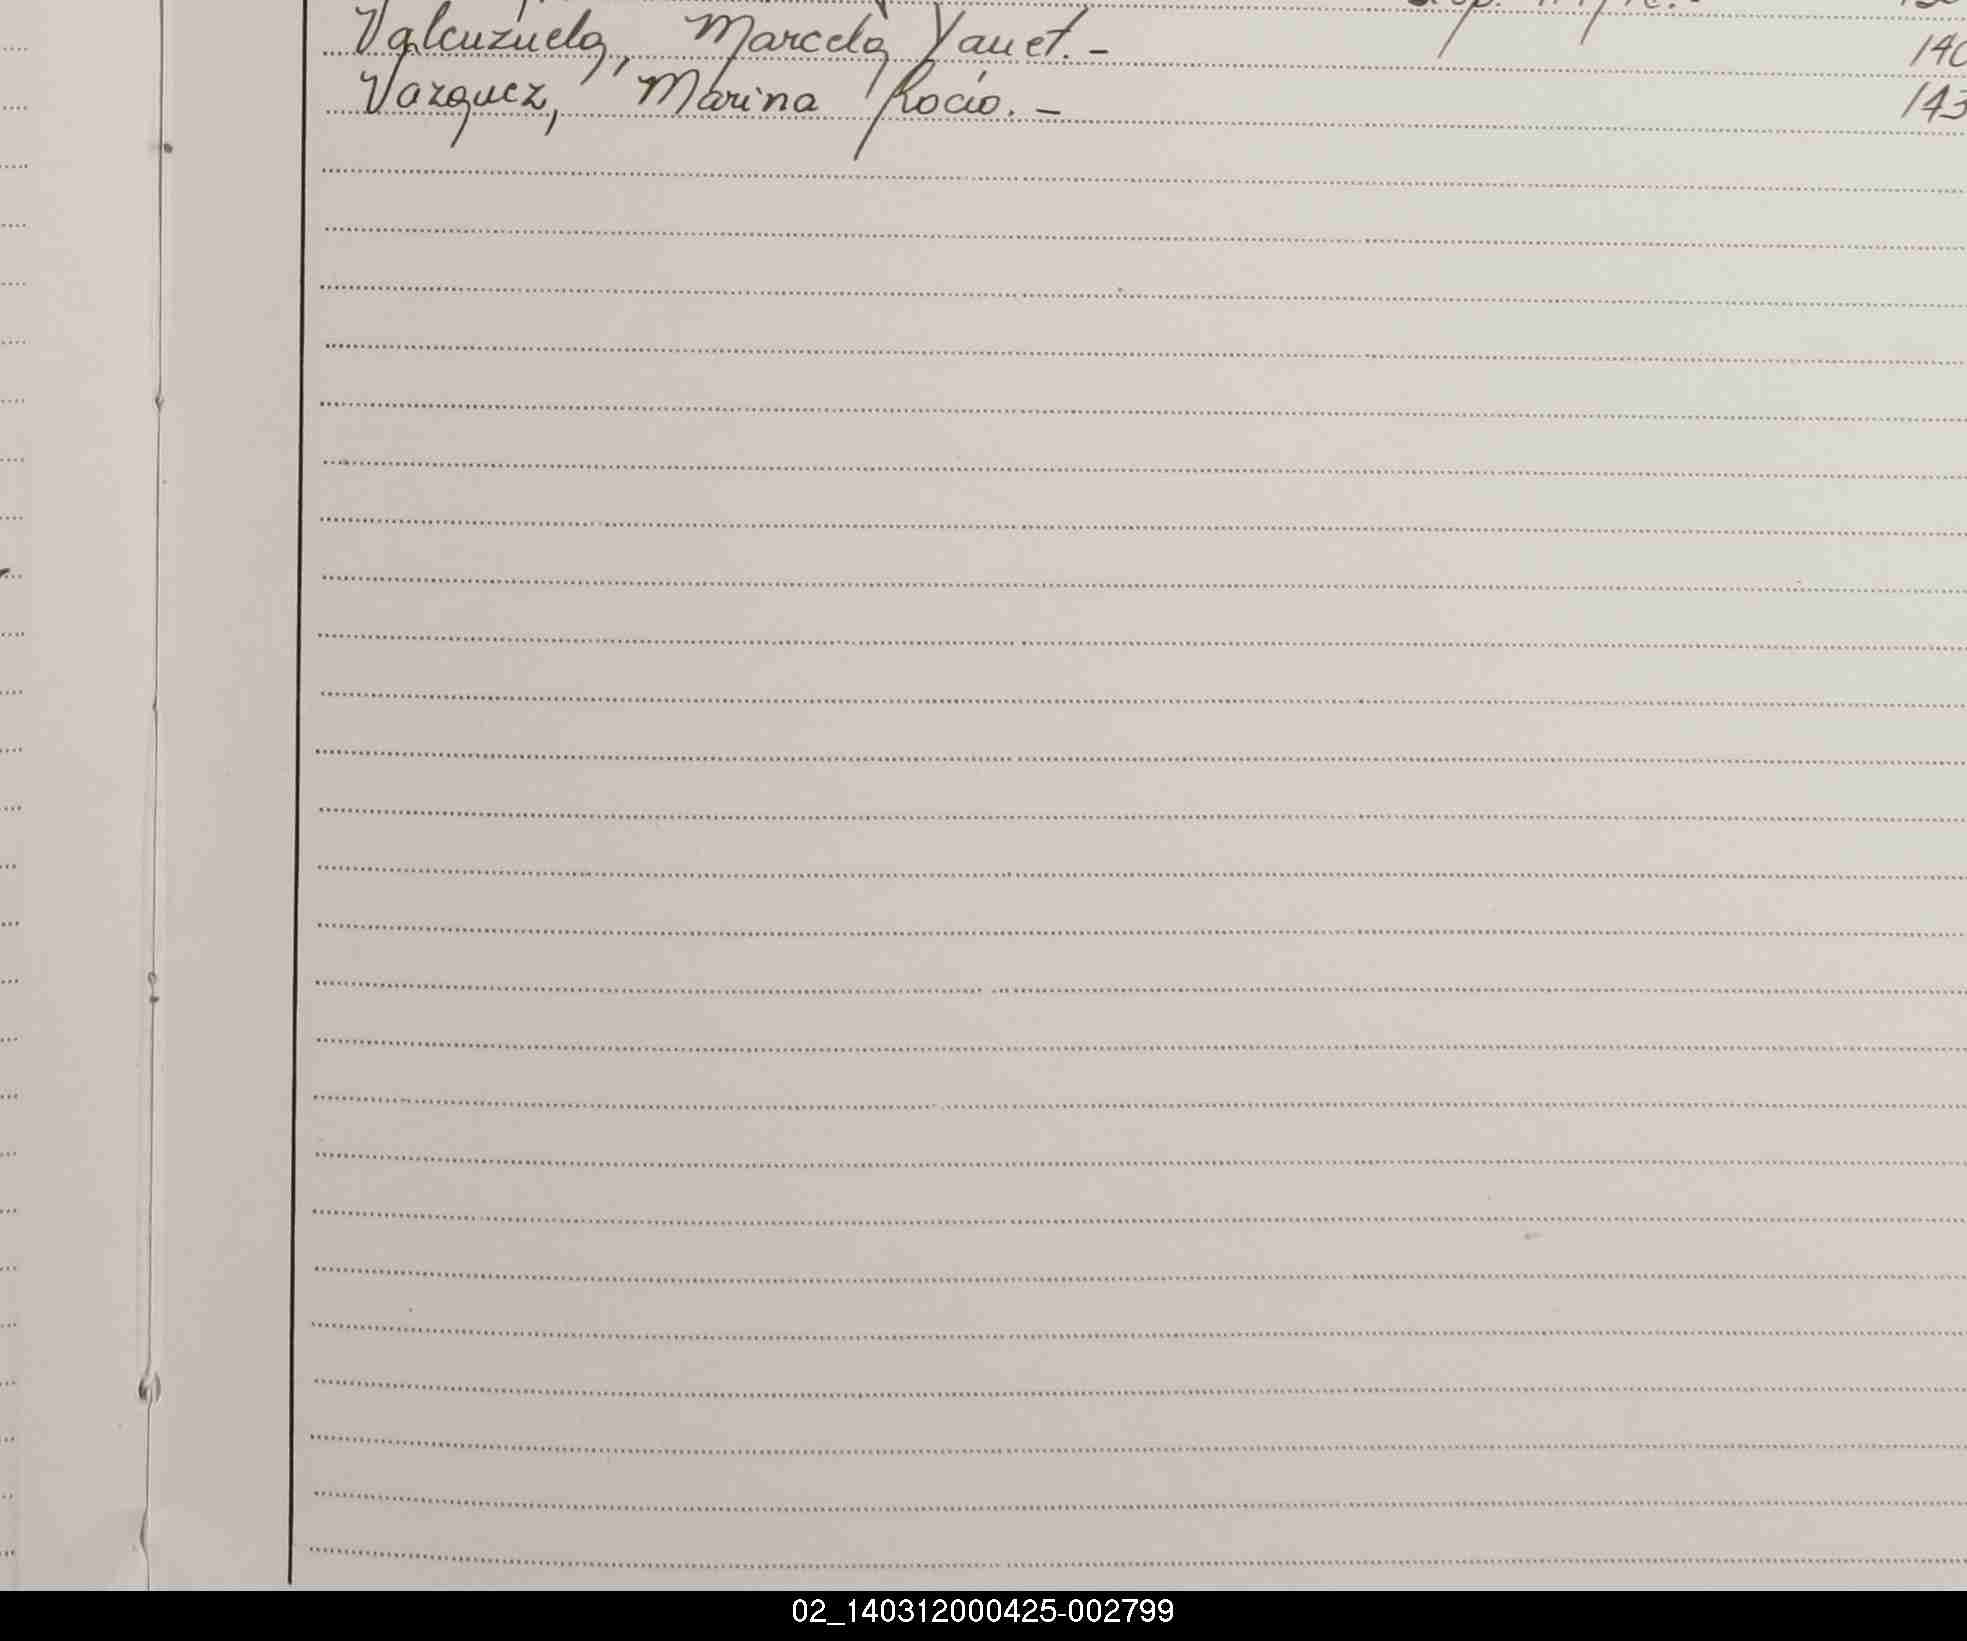 Valenzuela, Marcela Yanet. -
140
Vazquez, Marina Rocio. -
143
02_140312000425-002799